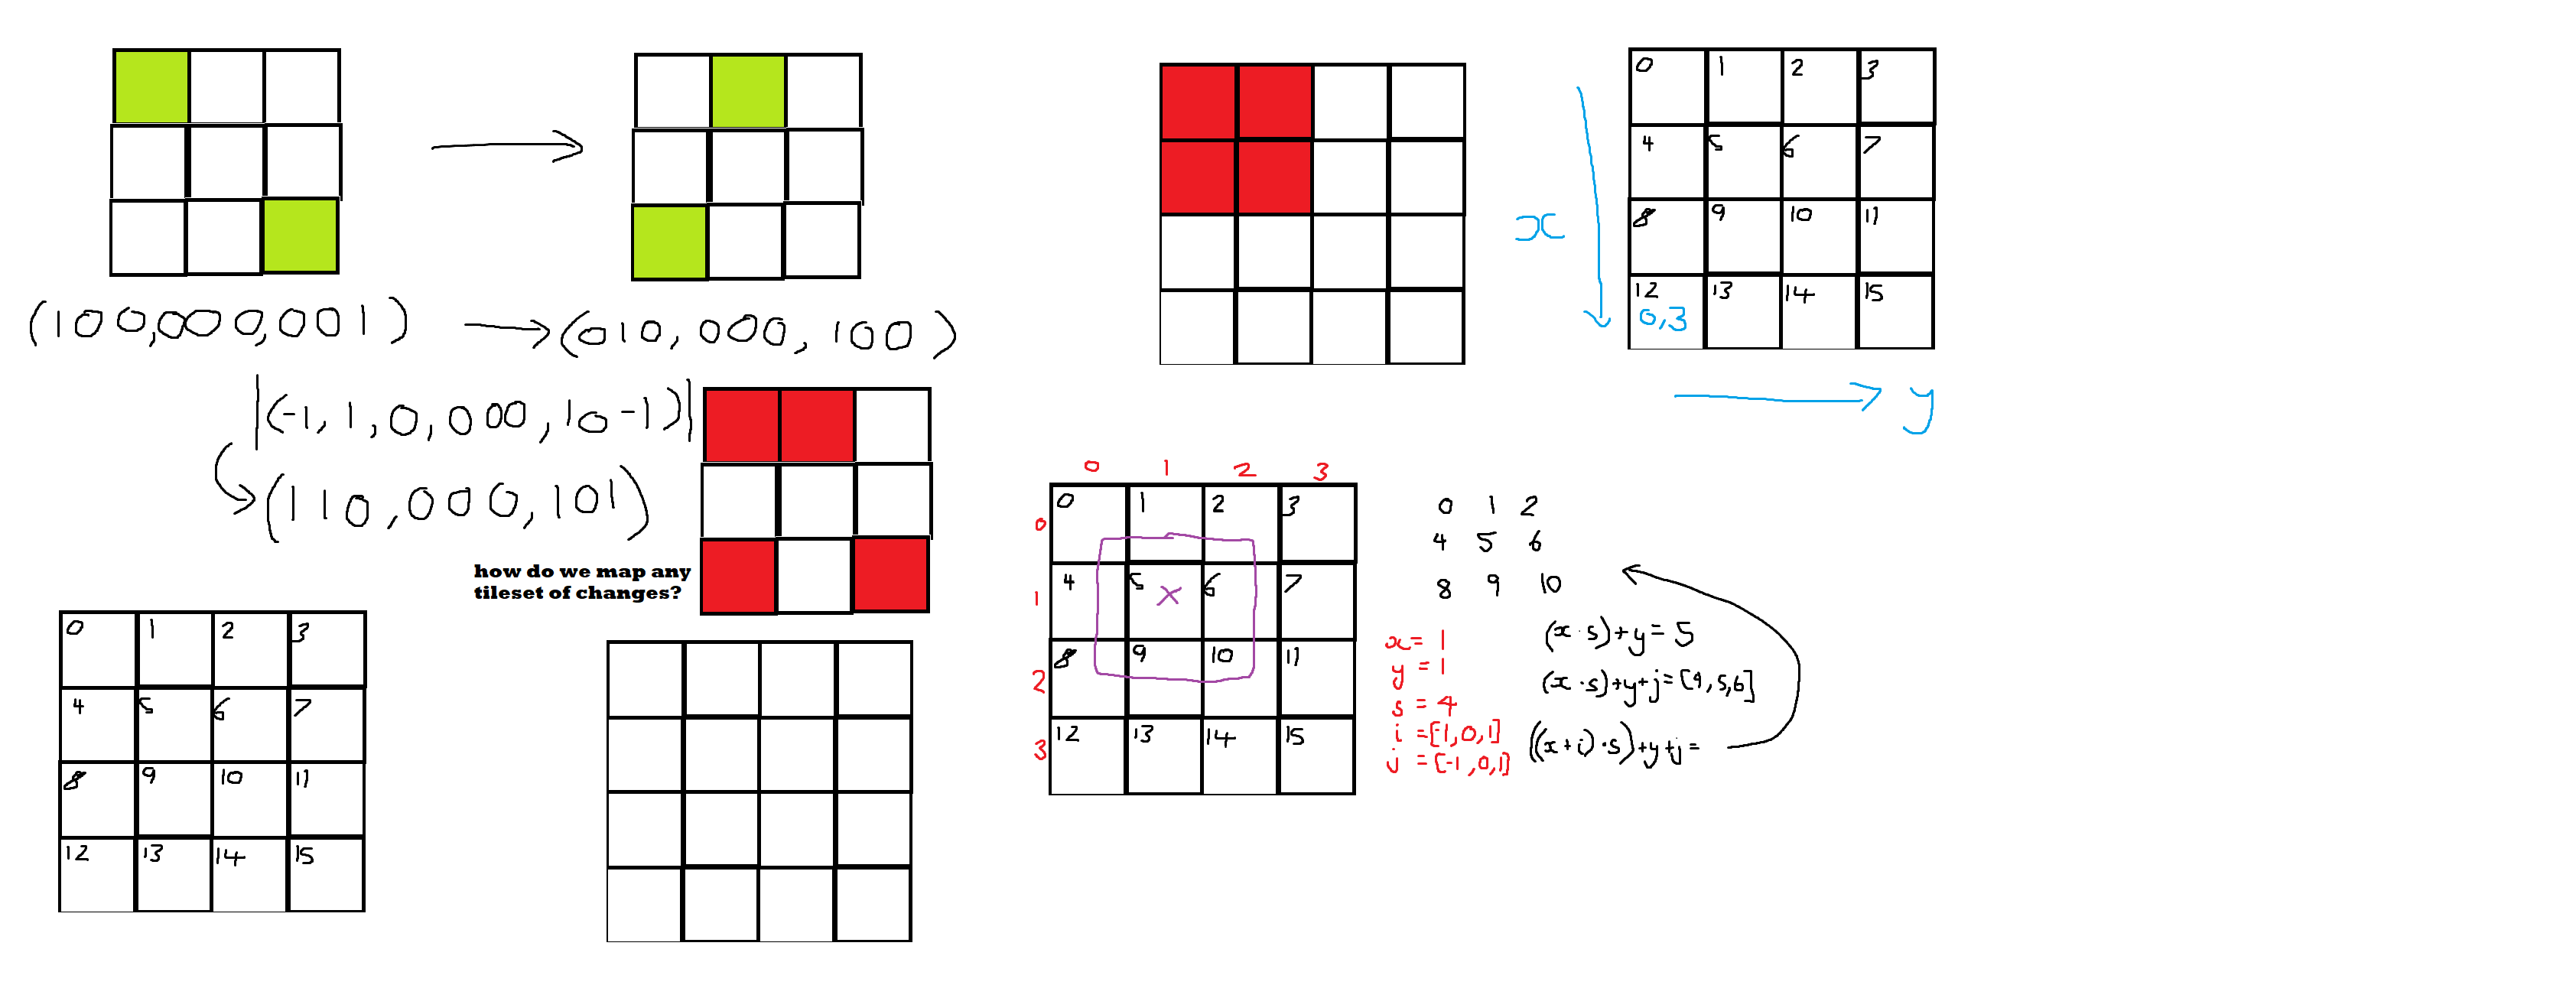 (100,000,001)
(010,000,100)
|(-1,1,0,000,10-1)|
(110,000,101)
how do we map any
tileset of changes?
0 1 2 3
4 5 6 7
8 9 10 11
12 13 14 15
0 1 2 3
4 5 6 7
8 9 10 11
12 13 14 15
0,3
x
y
0 1 2 3
0
1
2
3
0 1 2 3
4 5 x 6 7
8 9 10 11
12 13 14 15
x= 1
y = 1
s = 4
i =[-1,0,1]
j =[-1,0,1]
0 1 2
4 5 6
8 9 10
(x·s)+y=5
(x·s)+y+j=[4,5,6]
((x+i)·s)+y+j=